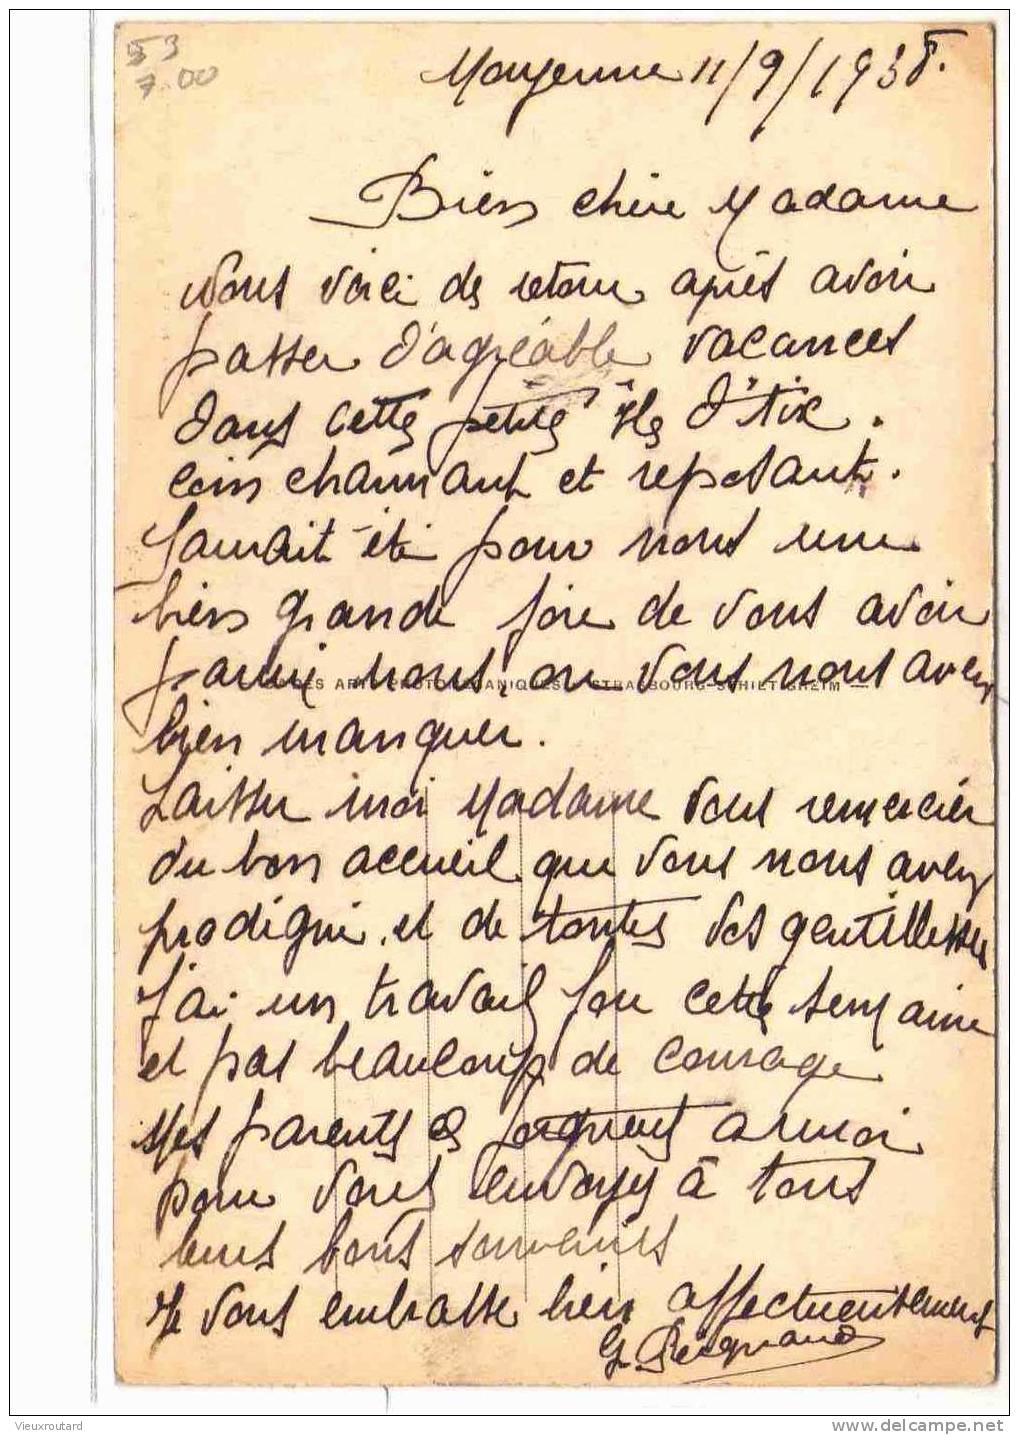 53
7.00
Mayenne 11/9/1938.
Bien chère Madame
Nous voici de retour après avoir
passer d'agréable vacances
dans cette petite île d'Aix.
coin charmant et reposant.
Saurait été pour nous une
bien grande joie de vous avoir
parmi nous, ou vous nous avez
bien manquer.
Laisser moi Madame vous remercier
du bon accueil que vous nous avez
prodigué, et de toutes vos gentillesses
J'ai un travail fou cette semaine
et pas beaucoup de courage
Mes parents se joignent a moi
pour vous envoyer à tous
leurs bons souvenirs
Je vous embrasse bien affectueusement
G.
Vieuxroutard
delcampe.net